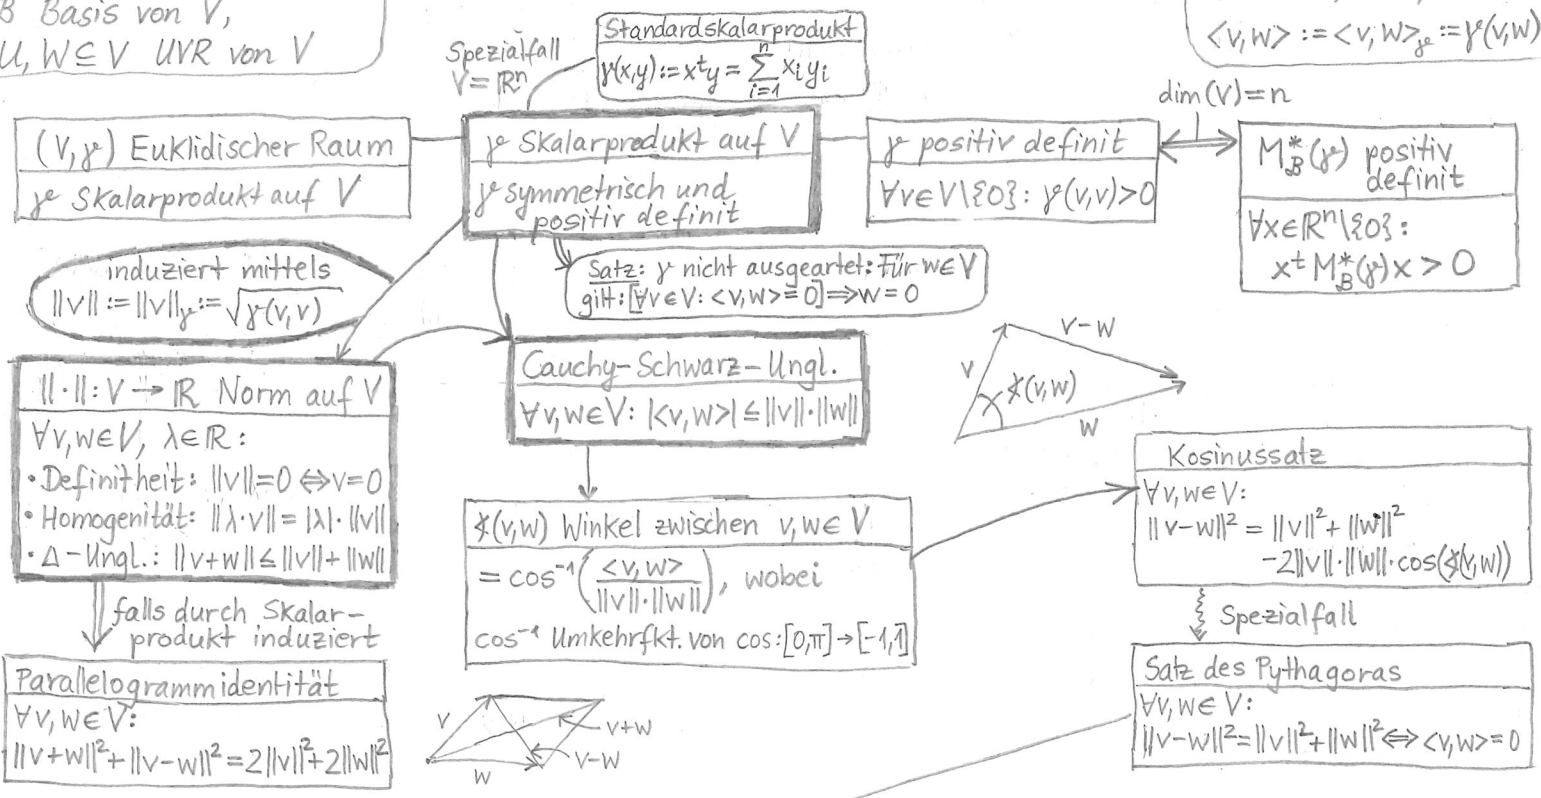 B Basis von V,
U, W ⊆ V UVR von V
<v,w> := <v,w>_γ := γ(v,w)
Spezialfall
V = ℝⁿ
Standardskalarprodukt
γ(x,y) := xᵗy = ∑ⁿᵢ₌₁ xᵢyᵢ
dim(V)=n
(V,γ) Euklidischer Raum
γ Skalarprodukt auf V
γ Skalarprodukt auf V
γ symmetrisch und
positiv definit
γ positiv definit
∀v∈V\{0}: γ(v,v)>0
M*_B(γ) positiv
definit
∀x∈ℝⁿ\{0}:
xᵗ M*_B(γ)x > 0
induziert mittels
||v|| := ||v||_γ := √γ(v,v)
Satz: γ nicht ausgeartet: Für w∈V
gilt: [∀v∈V: <v,w> = 0] ⇒ w = 0
||·||: V → ℝ Norm auf V
∀v,w∈V, λ∈ℝ:
• Definitheit: ||v||=0 ⇔ v=0
• Homogenität: ||λ·v|| = |λ|·||v||
• Δ-Ungl.: ||v+w|| ≤ ||v||+||w||
Cauchy-Schwarz-Ungl.
∀v,w∈V: |<v,w>| ≤ ||v||·||w||
v-w
v
∢(v,w)
w
∢(v,w) Winkel zwischen v,w∈V
= cos⁻¹(<v,w> / ||v||·||w||), wobei
cos⁻¹ Umkehrfkt. von cos: [0,π]→[-1,1]
Kosinussatz
∀v,w∈V:
||v-w||² = ||v||² + ||w||²
-2||v||·||w||·cos(∢(v,w))
falls durch Skalar-
produkt induziert
Spezialfall
Parallelogrammidentität
∀v,w∈V:
||v+w||²+||v-w||²=2||v||²+2||w||²
v
v+w
v-w
w
Satz des Pythagoras
∀v,w∈V:
||v-w||²=||v||²+||w||² ⇔ <v,w>=0